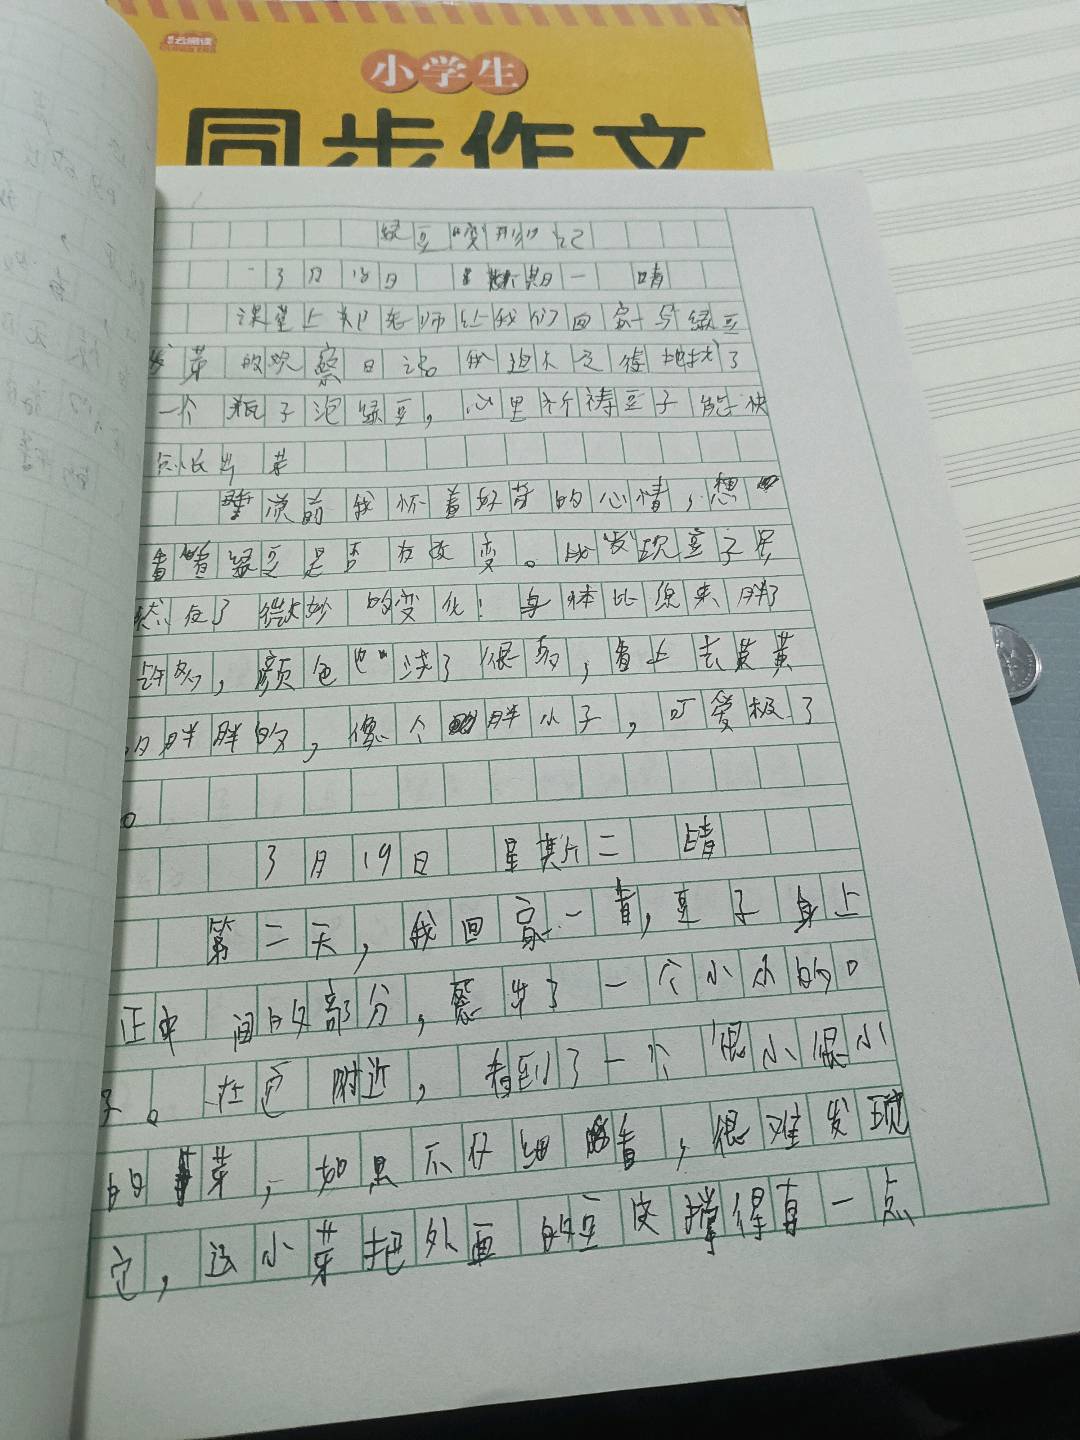 云阅读
小学生
同步作文
绿豆“变形”记
3月18日 星期一 晴
课堂上老师让我们回家写绿豆
发芽的观察日记 我迫不及待地找了
一个瓶子泡绿豆，心里祈祷豆子能快
点长出芽
睡觉前我怀着好奇的心情，想
看看绿豆是否有改变。我发现豆子果
然有了微妙的变化！身体比原来胖了
许多，颜色也淡了很多，看上去黄黄
的胖胖的，像个胖小子，可爱极了
。
3月19日 星期二 晴
第二天，我回家一看，豆子身上
正中间的部分，裂开了一个小小的口
子。在它附近，看到了一个很小很小
的芽，如果不仔细看，很难发现
它，这小芽把外面的豆皮撑得有一点